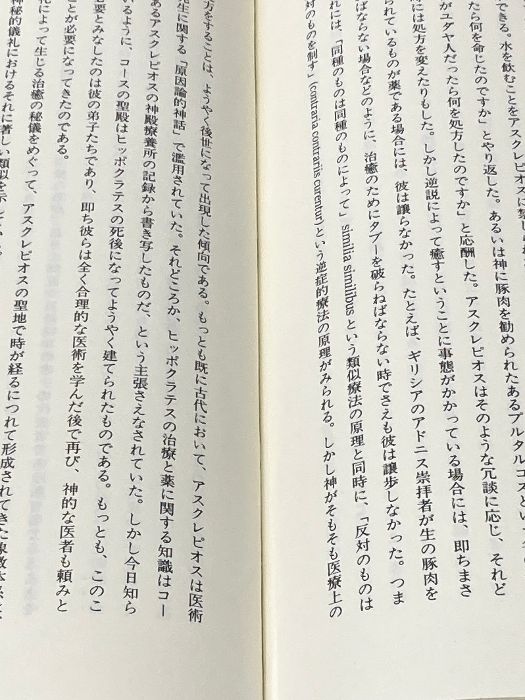 できる。水を飲むことをアスクレピオスに禁じ
られたあるプルタルコスという
たら何を命じたのですか」とやり返した。あるいは神に豚肉を勧め
がユダヤ人だったら何を処方したのですか」と応酬した。アスクレピオスはそのような冗談に応じ、それど
には処方を変えたりもした。しかし逆説によって癒すということに事態がかかっている場合には、即ちまさ
られているものが薬である場合には、彼は譲らなかった。たとえば、ギリシアのアドニス崇拝者が生の豚肉を
ばならない場合などのように、治癒のためにタブーを破らねばならない時でさえも彼は譲歩しなかった。つま
れには、「同種のものは同種のものによって」similia similibus という類似療法の原理と同時に、「反対のものは
対のものを制す」(contraria contrariis curentur)という逆症的療法の原理がみられる。しかし神がそもそも医療上の
方をすることは、ようやく後世になって出現した傾向である。もっとも既に古代において、アスクレピオスは医術
生に関する「原因論的神話」で濫用されていた。それどころか、ヒッポクラテスの治療と薬に関する知識はコー
あるアスクレピオスの神殿療養所の記録から書き写したものだ、という主張さえなされていた。しかし今日知ら
いるように、コースの聖殿はヒッポクラテスの死後になってようやく建てられたものである。もっとも、このこ
必要とみなしたのは彼の弟子たちであり、即ち彼らは全く合理的な医術を学んだ後で再び、神的な医者も頼みと
ことが必要になってきたのである。
によって生じる治癒の秘儀をめぐって、アスクレピオスの聖地で時が経るにつれて形成されてきた
神秘的儀礼におけるそれに著しい類似を示し